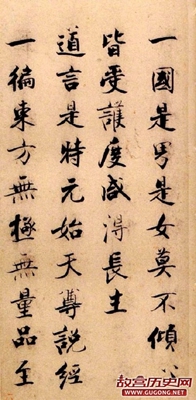 一國是男是女莫不傾心
皆受護度咸得長生
道言是時元始天尊說經
一徧東方無極無量品至
故宫历史网
GUGONG.NET